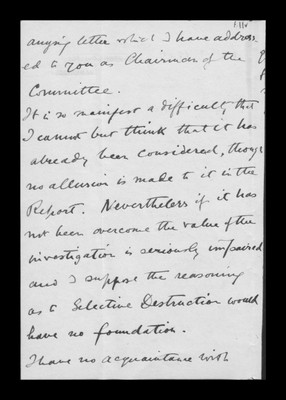 f.11v
anying letter which I have address
ed to you as Chairman of the
Committee.
It is so manifest a difficulty that
I cannot but think that it has
already been considered, though
no allusion is made to it in the
Report. Nevertheless if it has
not been overcome the value of the
investigation is seriously impaired
and I suppose the reasoning
as to Selective Destruction would
have no foundation.
I have no acquaintance with